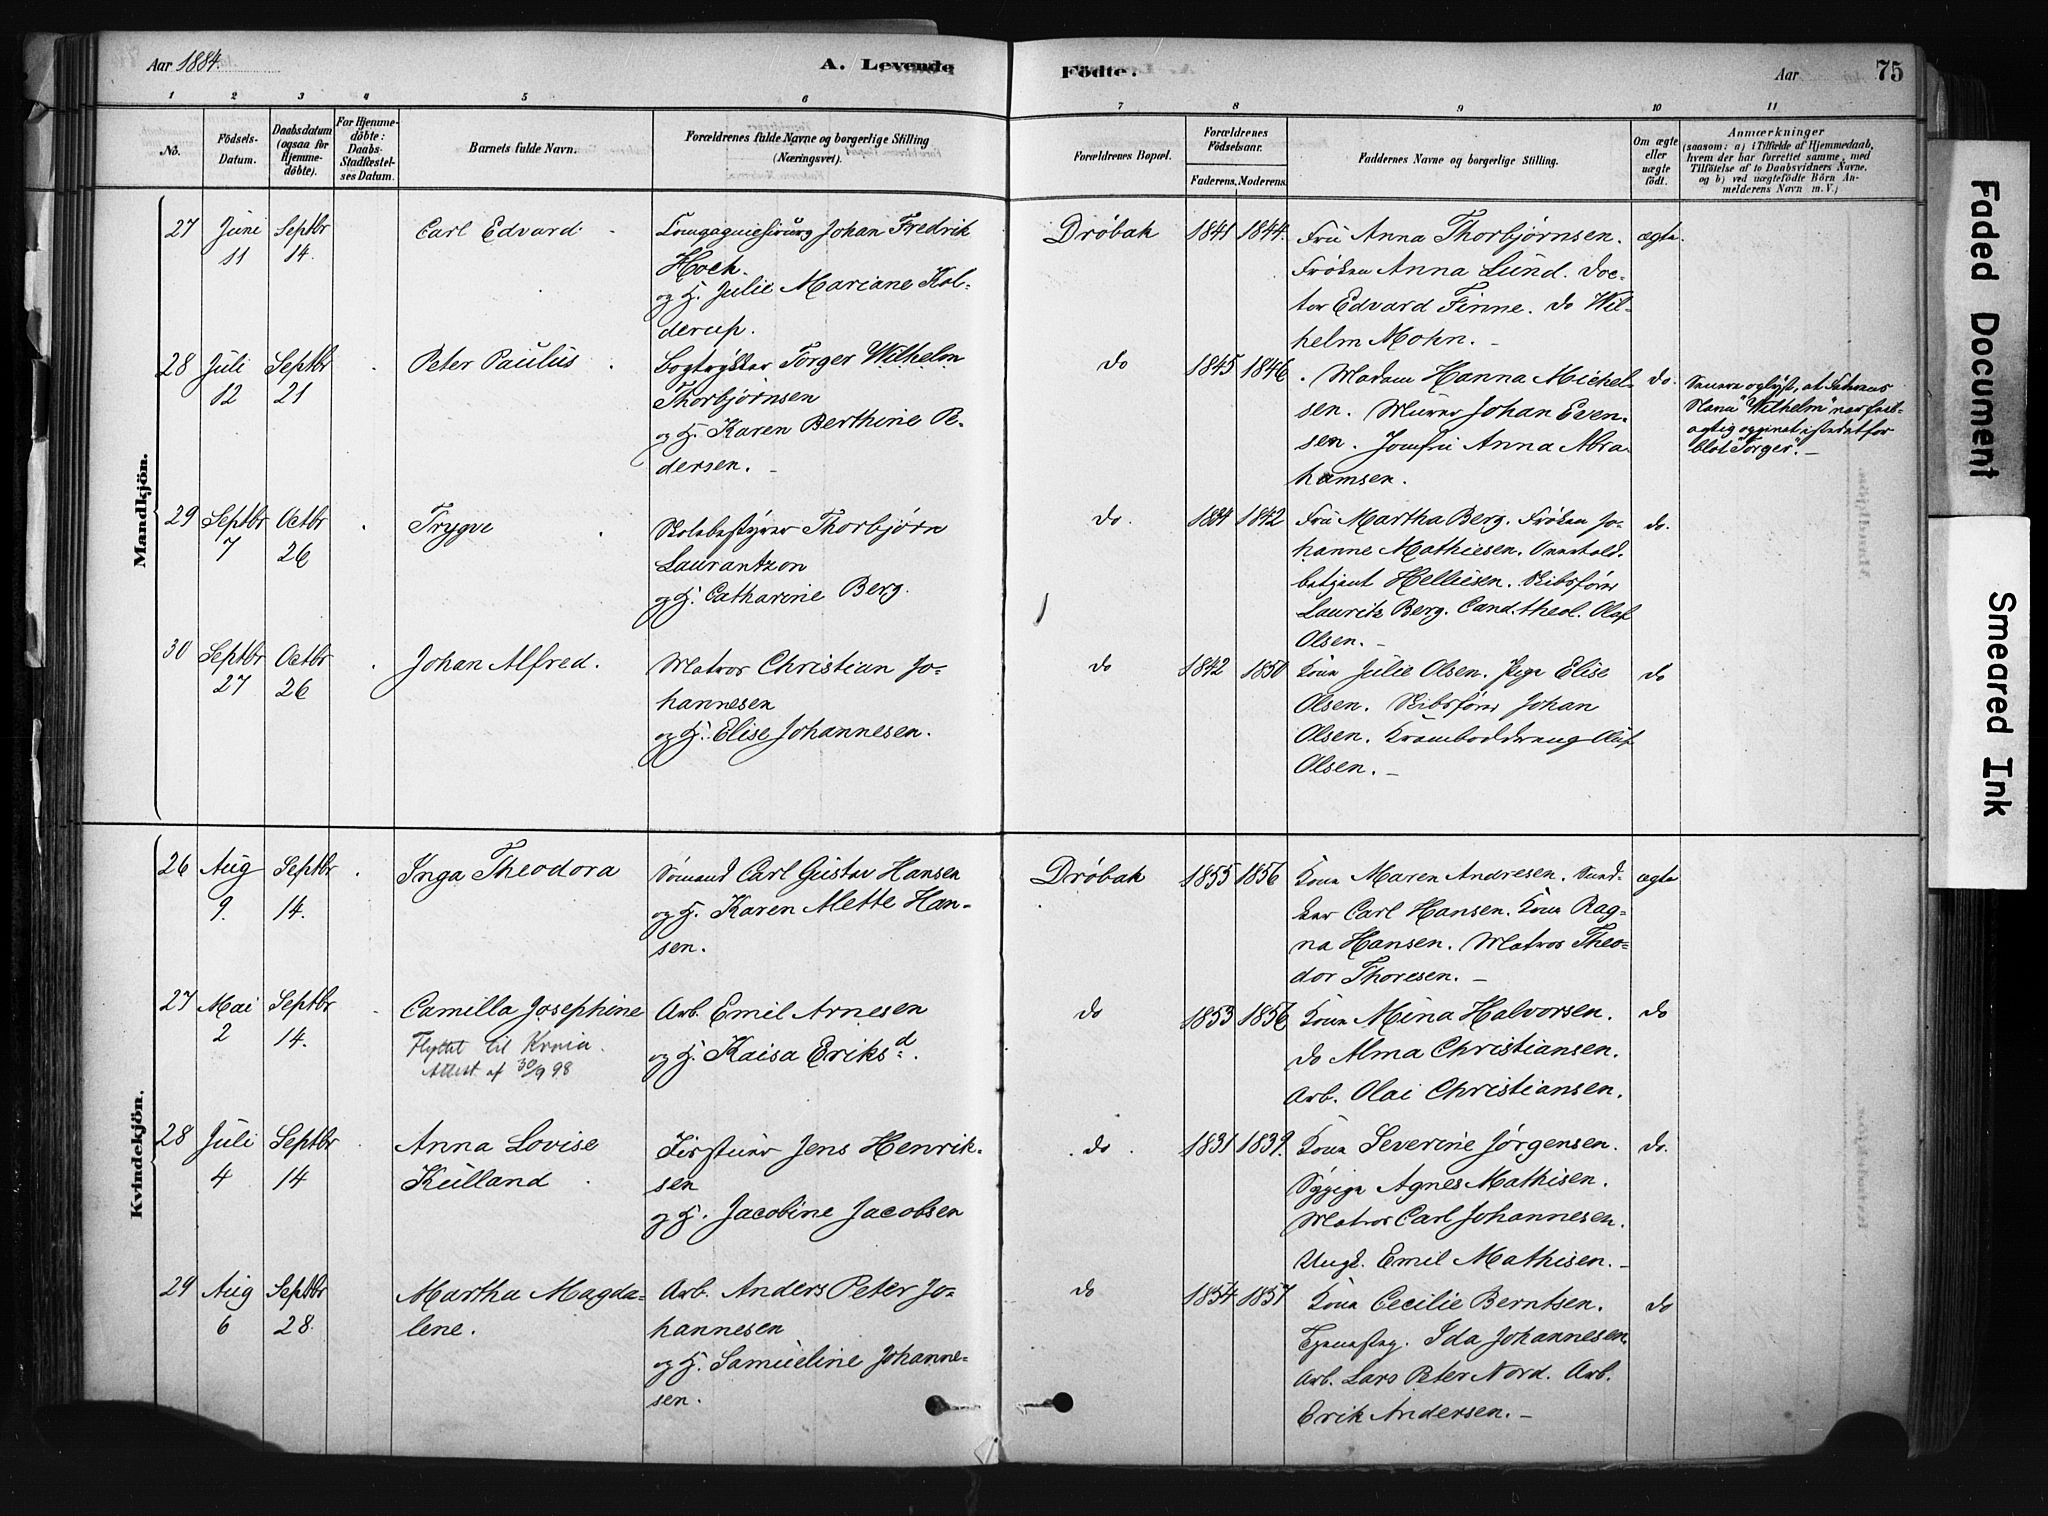 Aar 1884.
A. Levende
Födte.
Aar
75
1 2 3 4 5 6 7 8 9 10 11
No.
Födsels-
Datum.
Daabsdatum
(ogsaa for
Hjemme-
döbte).
For Hjemme-
döbte:
Daabs-
Stadfæstel-
ses Datum.
Barnets fulde Navn.
Forældrenes fulde Navne og borgerlige Stilling
(Næringsvei).
Forældrenes Bopæl.
Forældrenes
Födselsaar.
Faderens. Moderens.
Faddernes Navne og borgerlige Stilling.
Om ægte
eller
uægte
födt.
Anmærkninger
(saasom: a) i Tilfælde af Hjemmedaab,
hvem der har forrettet samme, med
Tilföielse af to Daabsvidners Navne.
og b) ved uægtefödte Börn An-
melderens Navn m. V.)
Mandkjön.
27
Juni
11
Septbr
14.
Carl Edvard
Compagniechirurg Johan Fredrik
Hoch.
og H. Julie Mariane Kol-
derup.
Dröbak
1841
1844.
Fru Anna Thorbjørnsen.
Frøken Anna Lund. Doc-
tor Edvard Finne. do Wil-
helm Mohn. –
ægte.
28
Juli
12
Septbr
21
Peter Paulus
Bogtrykker Torger Wilhelm
Thorbjörnsen
og H. Karen Berthine Pe-
dersen. –
do
1845
1846
Madam Hanna Michel-
sen. Murer Johan Even-
sen. Jomfru Anna Abra-
hamsen.
do.
Senere oplyst, at Faderens
Navn "Wilhelm" var feil-
agtig opgivet istedetfor
blot "Torger". –
29
Septbr
7
Octbr
26
Trygve
Skolebestyrer Thorbjørn
Laurantzon
og H. Catharine Berg.
do.
1834
1842
Fru Martha Berg. Frøken Jo-
hanne Mathiesen.
betjent Helliesen. Skibsfører
Lauritz Berg. Cand. theol. Olaf
Olsen. –
do.
30
Septbr
27
Octbr
26
Johan Alfred.
Matros Christian Jo-
hannesen
og H. Elise Johannesen.
do
1842
1850
Kone Julie Olsen. Pige Elise
Olsen. Skibsfører Johan
Olsen. Kramboddreng Oluf
Olsen. –
do
Kvindekjön.
26
Aug
9.
Septbr
14.
Inga Theodora
Sömand Carl Gustav Hansen
og H. Karen Mette Han-
sen.
Dröbak
1855
1856
Kone Maren Andresen. Sned-
ker Carl Hansen. Kone Rag-
na Hansen. Matros Theo-
dor Thoresen. –
ægte
27
Mai
2
Septbr
14.
Camilla Josephine
Flyttet til Krnia.
Attest af 30/9 98
Arb. Emil Arnesen
og H. Kaisa Eriksd.
do
1853
1856
Kone Mina Halvorsen.
do Alma Christiansen.
Arb. Olai Christiansen.
do
28
Juli
4
Septbr
14
Anna Lovise
Külland
Jens Henrik-
sen
og H. Jacobine Jacobsen
do
1831
1839.
Kone Severine Jørgensen.
Sypige Agnes Mathisen.
Matros Carl Johannesen.
Ungk. Emil Mathisen. –
do.
29
Aug
6
Septbr
28.
Martha Magda-
lene.
Arb. Anders Peter Jo-
hannesen
og H. Samueline Johanne-
sen.
do
1854
1857
Kone Cecilie Berntsen.
Ida Johannesen
Arb. Lars Peter Nord. Arb.
Erik Andersen. –
do
Faded Document
Smeared Ink